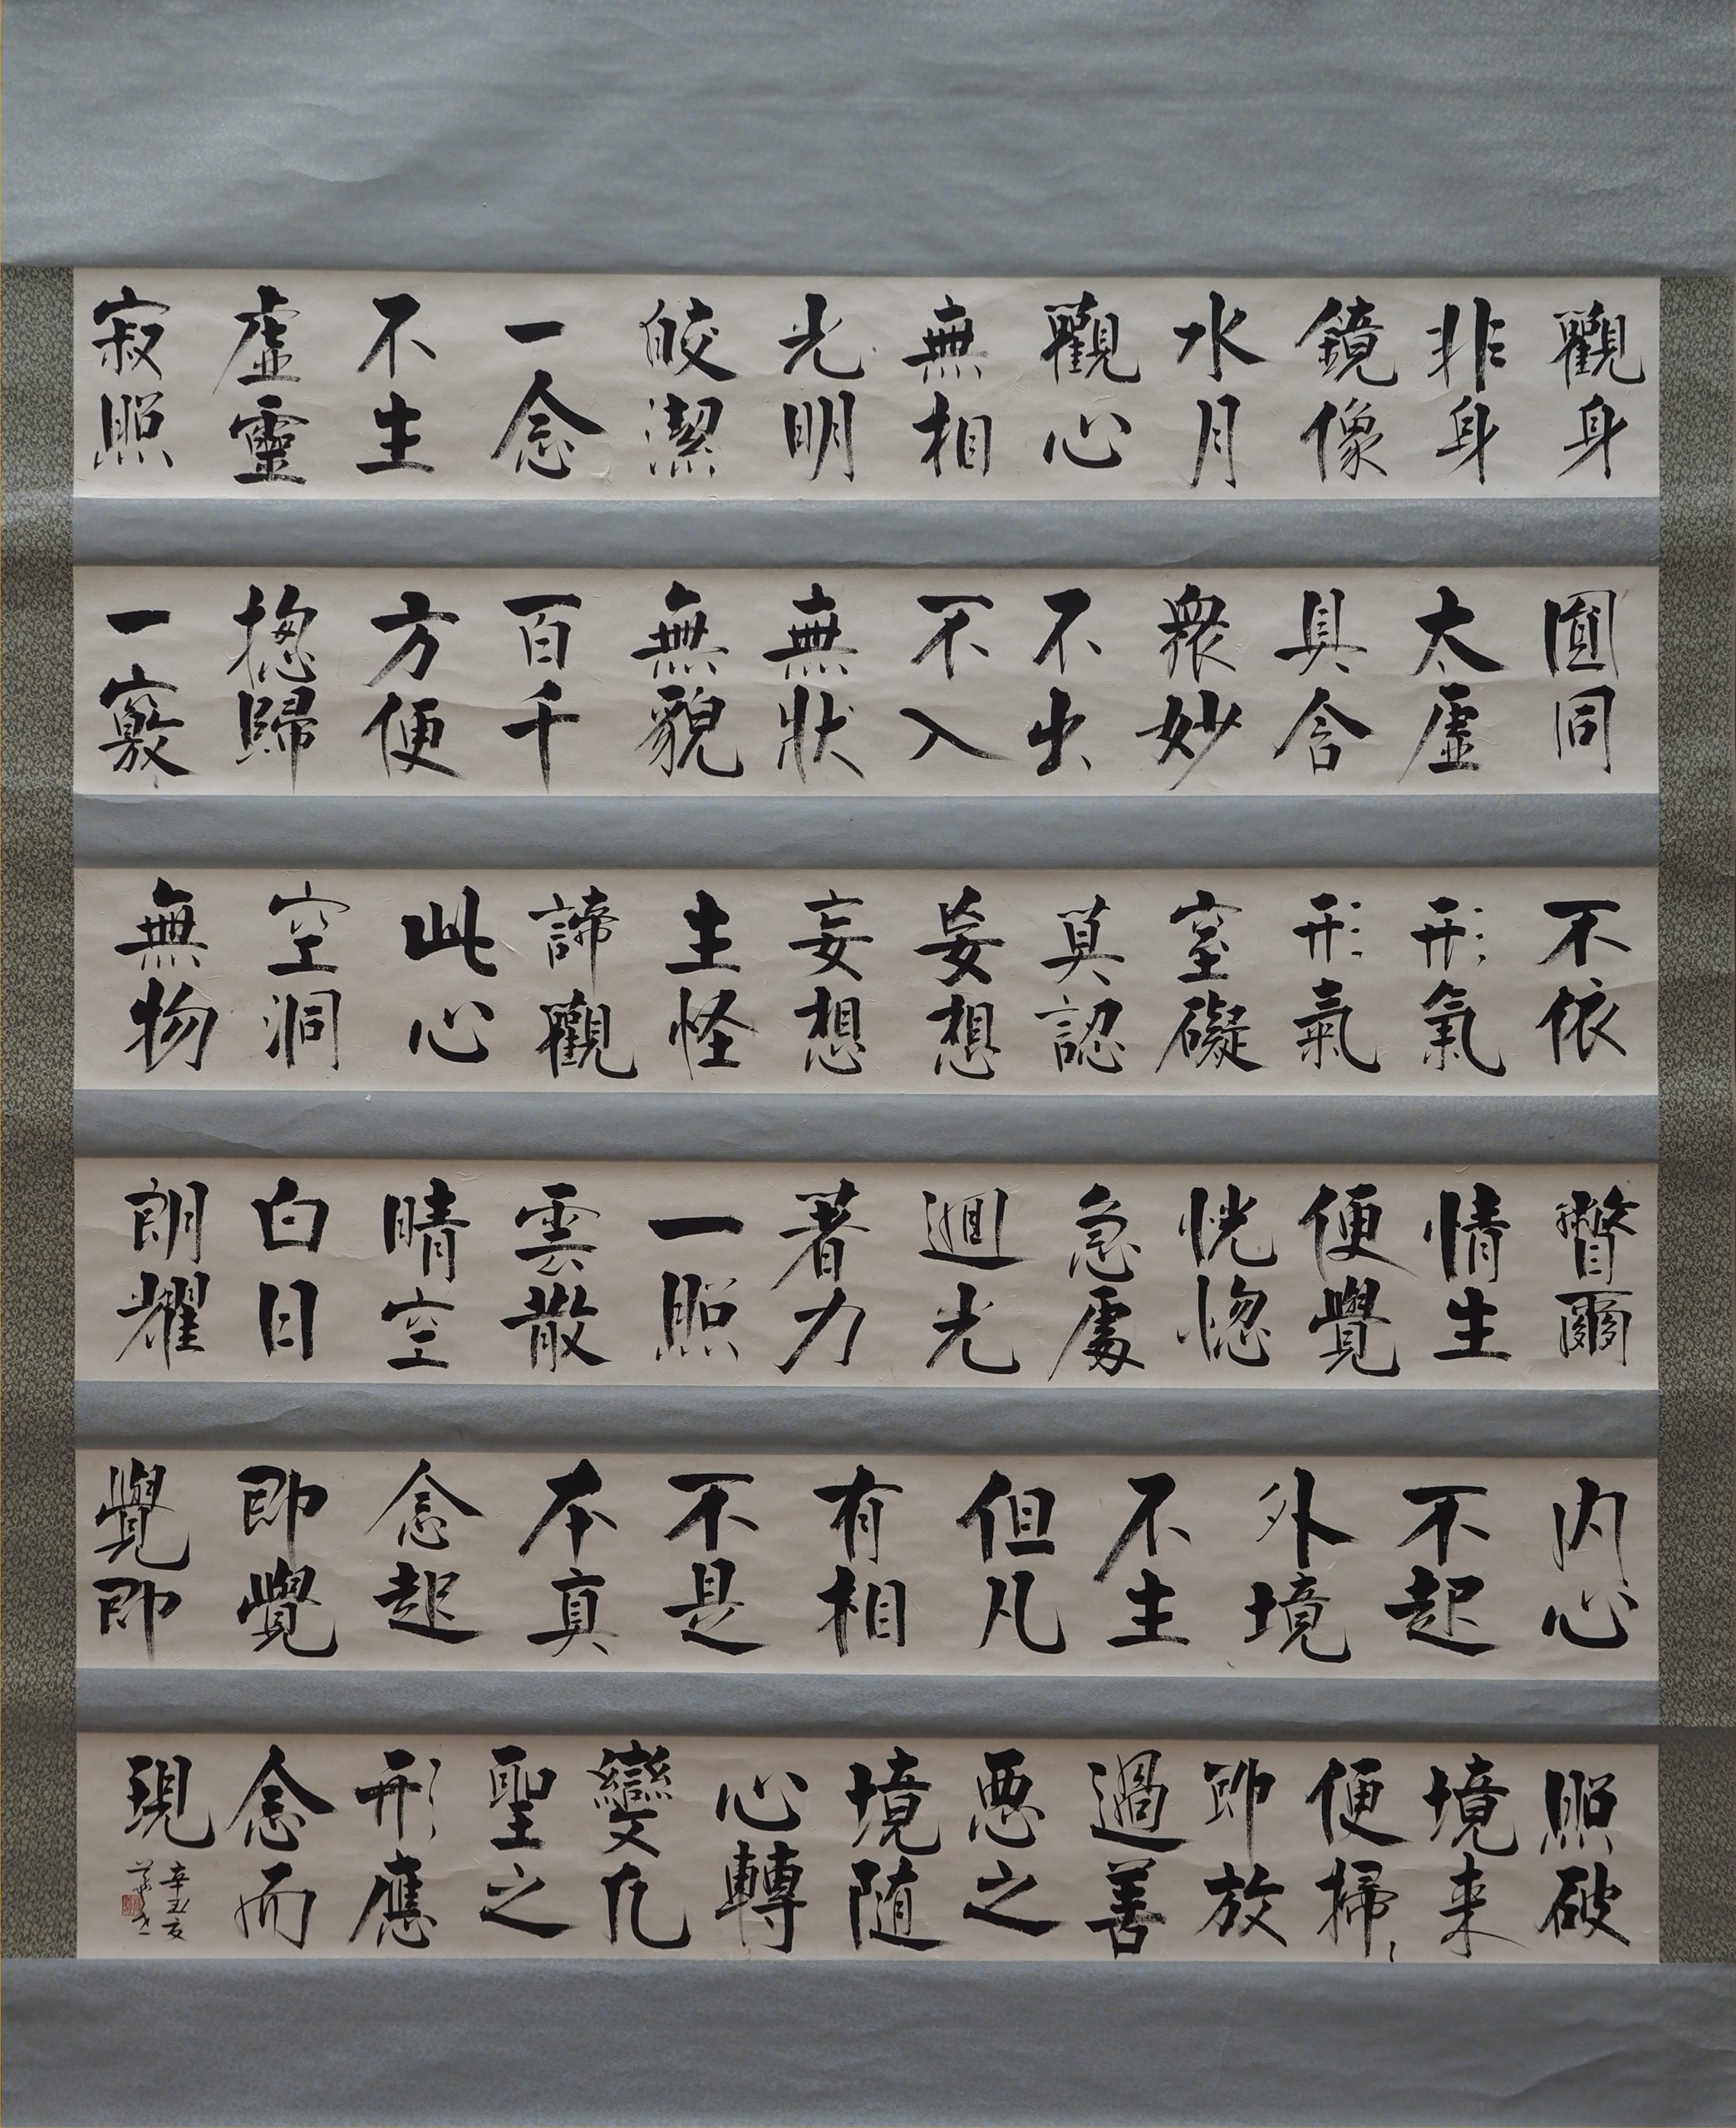 觀身
非身
鏡像
水月
觀心
無相
光明
皎潔
一念
不生
虛靈
寂照
圓同
太虛
具含
衆妙
不出
不入
無狀
無貌
百千
方便
摠歸
一竅
不依
形氣
形氣
窒礙
莫認
妄想
妄想
生怪
諦觀
此心
空洞
無物
瞥爾
情生
便覺
恍惚
急處
迴光
著力
一照
雲散
晴空
白日
朗耀
内心
不起
外境
不生
但凡
有相
不是
本真
念起
即覺
覺即
照破
境来
便掃
即放
過善
悪之
境随
心轉
變凡
聖之
形應
念而
現